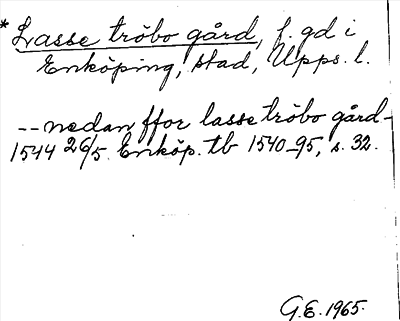 * Lasse tröbo gård, f. gd i
Enköping, stad, Upps. l.
-- nedan ffor lasse tröbo gård -
1544 26/5. Enköp. tb 1540-95, s. 32.
G.E. 1965.